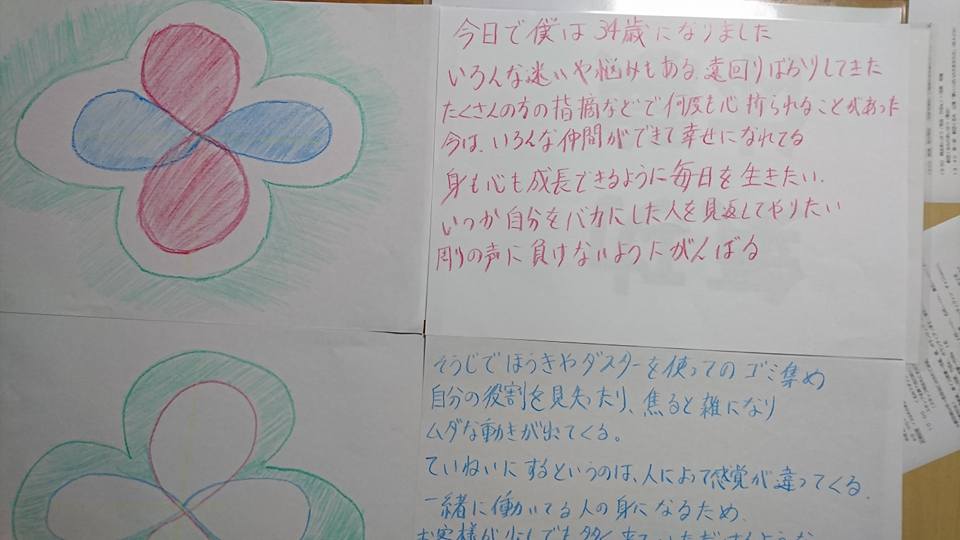 今日で僕は34歳になりました
いろんな迷いや悩みもある、遠回りばかりしてきた
たくさんの方の指摘などで何度も心折られることがあった
今は、いろんな仲間ができて幸せになれてる
身も心も成長できるように毎日を生きたい.
いつか自分をバカにした人を見返してやりたい
周りの声に負けないようにがんばる
そうじでほうきやダスターを使ってのゴミ集め
自分の役割を見失ったり、焦ると雑になり
ムダな動きが出てくる。
ていねいにするというのは、人によって感覚が違ってくる.
一緒に働いてる人の身になるため.
お客様が少しでも多く来ていただけるような